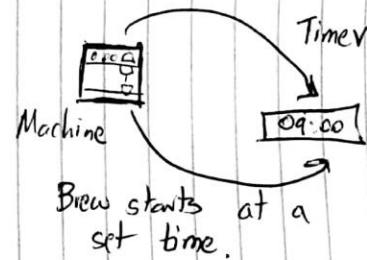 Timer
Machine
09:00
Brew starts at a
set time.